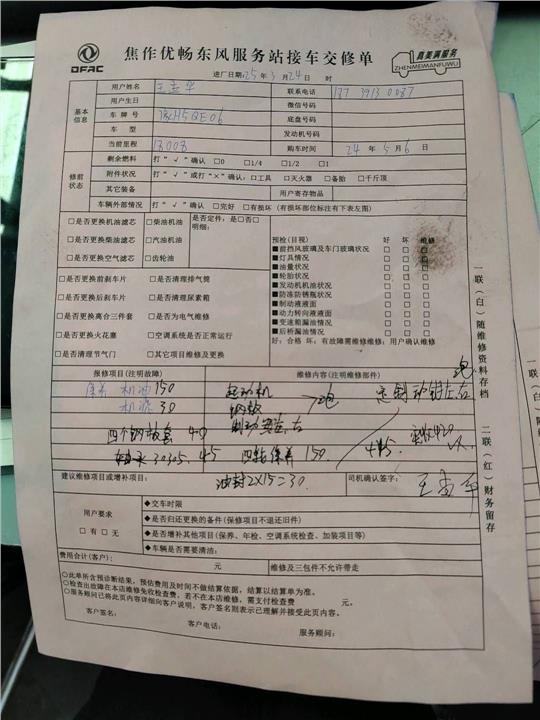 DFAC
焦作优畅东风服务站接车交修单
真美满服务
ZHENMEIMANFUWU
进厂日期:25年3月24日 时
基本信息
用户姓名 联系电话
用户生日 微信号码
车牌号 底盘号码
车型 发动机号码
当前里程 18008 购车时间 24年5月6日
修前状态
剩余燃料 打“√”确认 □0 □1/4 □1/2 □1
附件状况 打“√”或打“×”确认:□工具 □灭火器 □备胎 □千斤顶
其它装备 用户寄存物品
车辆外部情况 打“√”确认 □完好 □有损坏(有损坏部位标注有下表左图)
□是否更换机油滤芯 □柴油机油 是否定件:是□否□
明细:
□是否更换柴油滤芯 □汽油机油
□是否更换空气滤芯 □齿轮油
□是否更换前刹车片 □是否清理排气筒
□是否更换后刹车片 □是否清理尿素箱
□是否更换离合三件套 □是否为电气维修
□是否更换火花塞 □空调系统是否正常运行
□是否清理节气门 □其它项目维修及更换
预检(目视) 好 坏 维修
■前挡风玻璃及车门玻璃状况 □ □ □
■灯具情况 □ □ □
■油量状况 □ □ □
■轮胎状况 □ □ □
■发动机机油状况 □ □ □
■防冻防锈瓶状况 □ □ □
■制动液液面 □ □ □
■动力转向液液面 □ □ □
■变速箱漏油情况 □ □ □
■后桥漏油情况 □ □ □
好:合格 坏:有故障需维修维修:用户确认维修
报修项目(注明故障) 维修内容(注明维修部件)
保养 机油150 起动机
机滤 30
四个 套 40
30305.45 四轮保养 150
油封2X15=30
建议维修项目或增补项目: 司机确认签字:
用户要求
□有□无
◆交车时限
◆是否归还更换的备件(保修项目不退还旧件)
◆是否增补其他项目(保养、年检、空调系统检查、加装项目等)
◆车辆是否需要清油:
费用合计(客户): 元 维修及三包件不允许带走
○此单所含预诊断结果,预估费用及时间不做结算依据,结算以结算单为准。
○检查出故障在本店维修免收检查费,若不在本店维修,需支付检查费 元。
○服务顾问已将此页内容详细向客户说明,客户签名则表示已理解并接受此页内容。
客户签名: 客户电话: 服务顾问:
一联(白)随维修资料存档
二联(红)财务留存